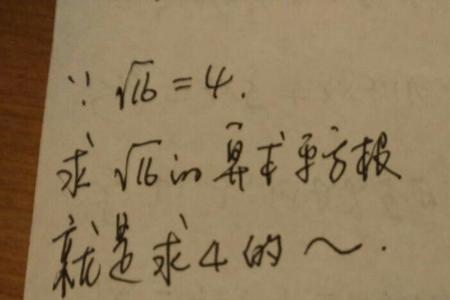 ∵ √16 = 4.
求 √16 的算术平方根
就是求 4 的 ～.